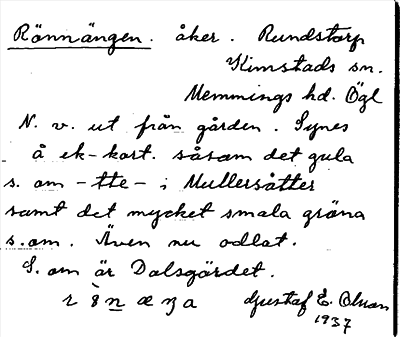 Rönnängen. åker. Rundstorp
Kimstads sn.
Memmings hd. Ögl
N. v. ut från gården. Synes
å ek-kart. såsom det gula
s. om -tte- i Mullersätter
samt det mycket smala gröna
s. om. Även nu odlat.
S. om är Dalsgärdet.
Gustaf E. Olsson
1937